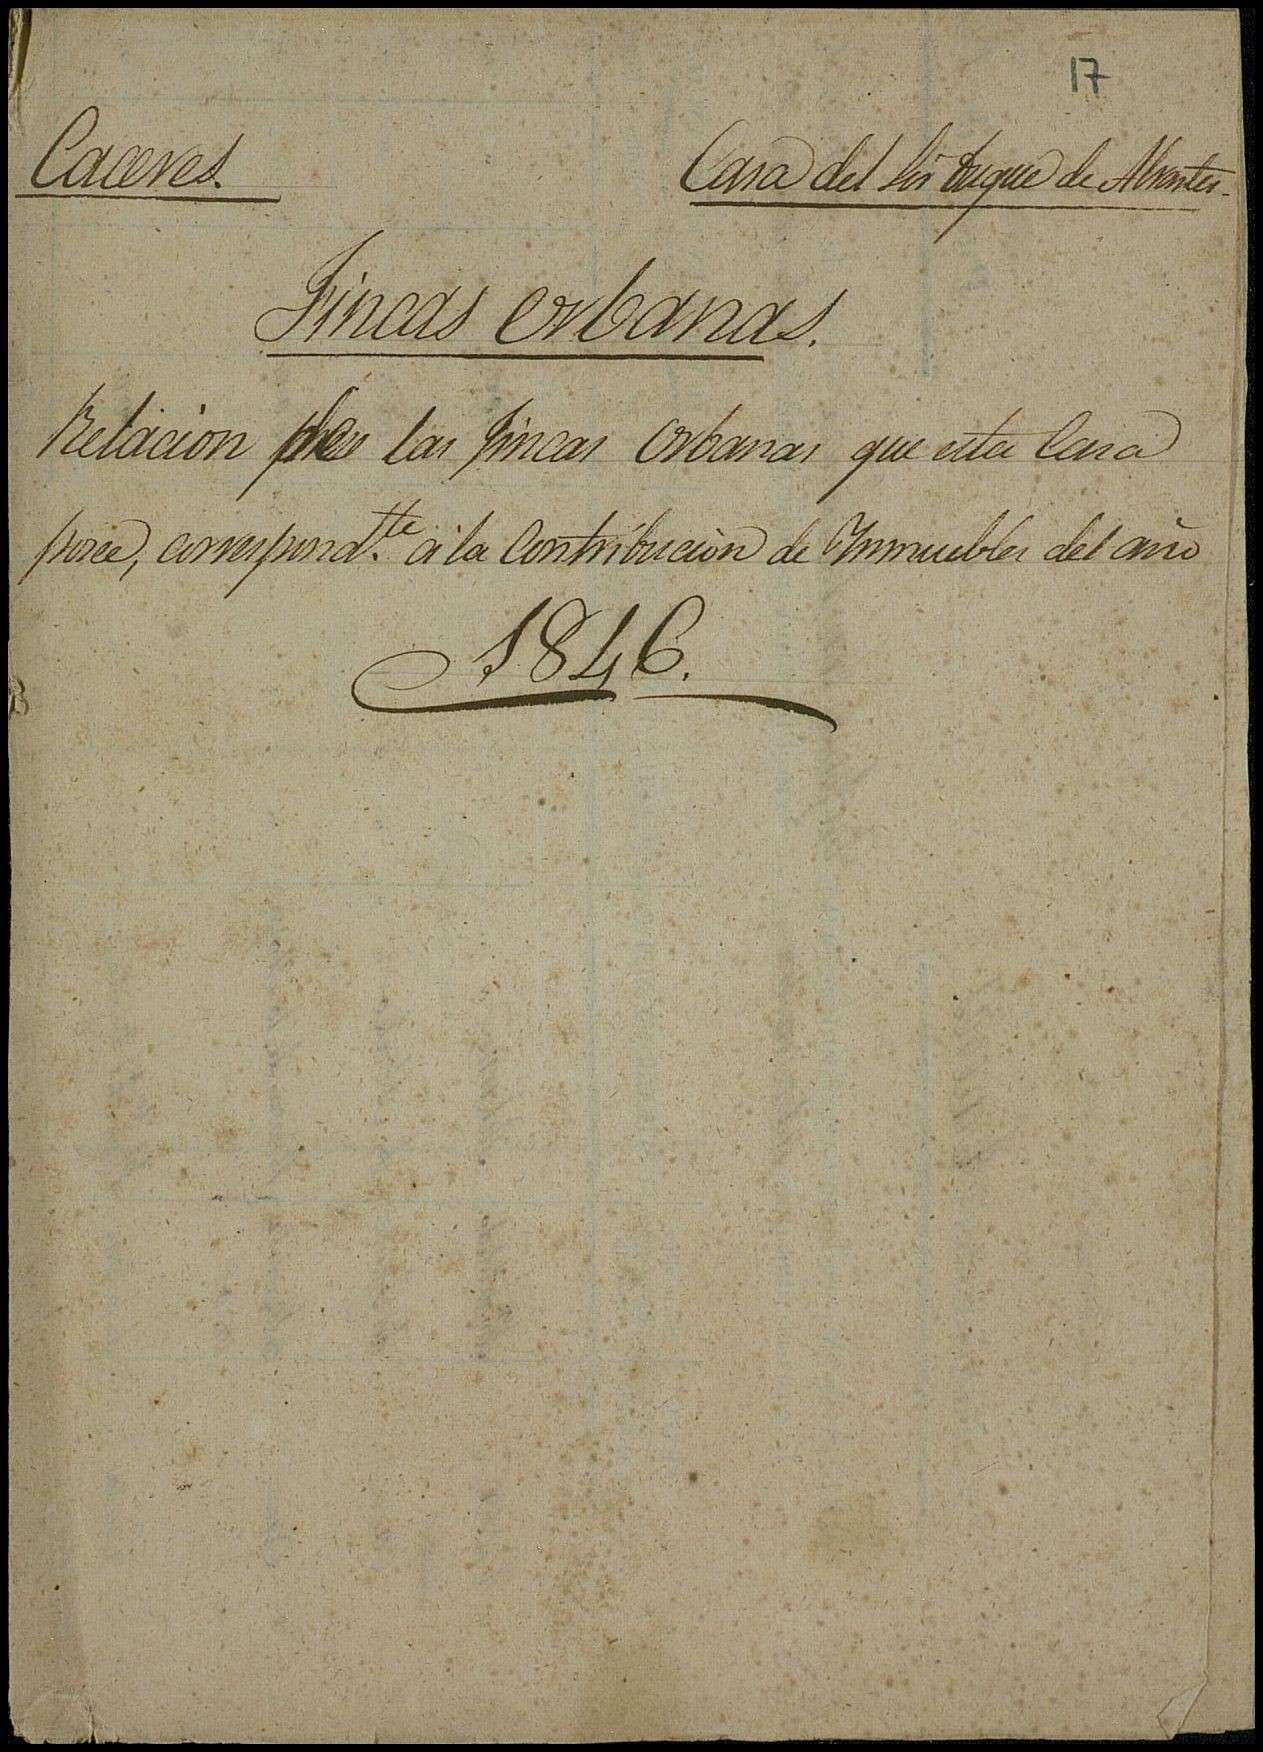 17
Caceres.
Casa del Sör Duque de Abrantes.
Fincas Orbanas.
Relacion de las fincas Orbanas que esta Casa
posée, correspond.te a la Contribucion de Ynmuebles del año
1846.